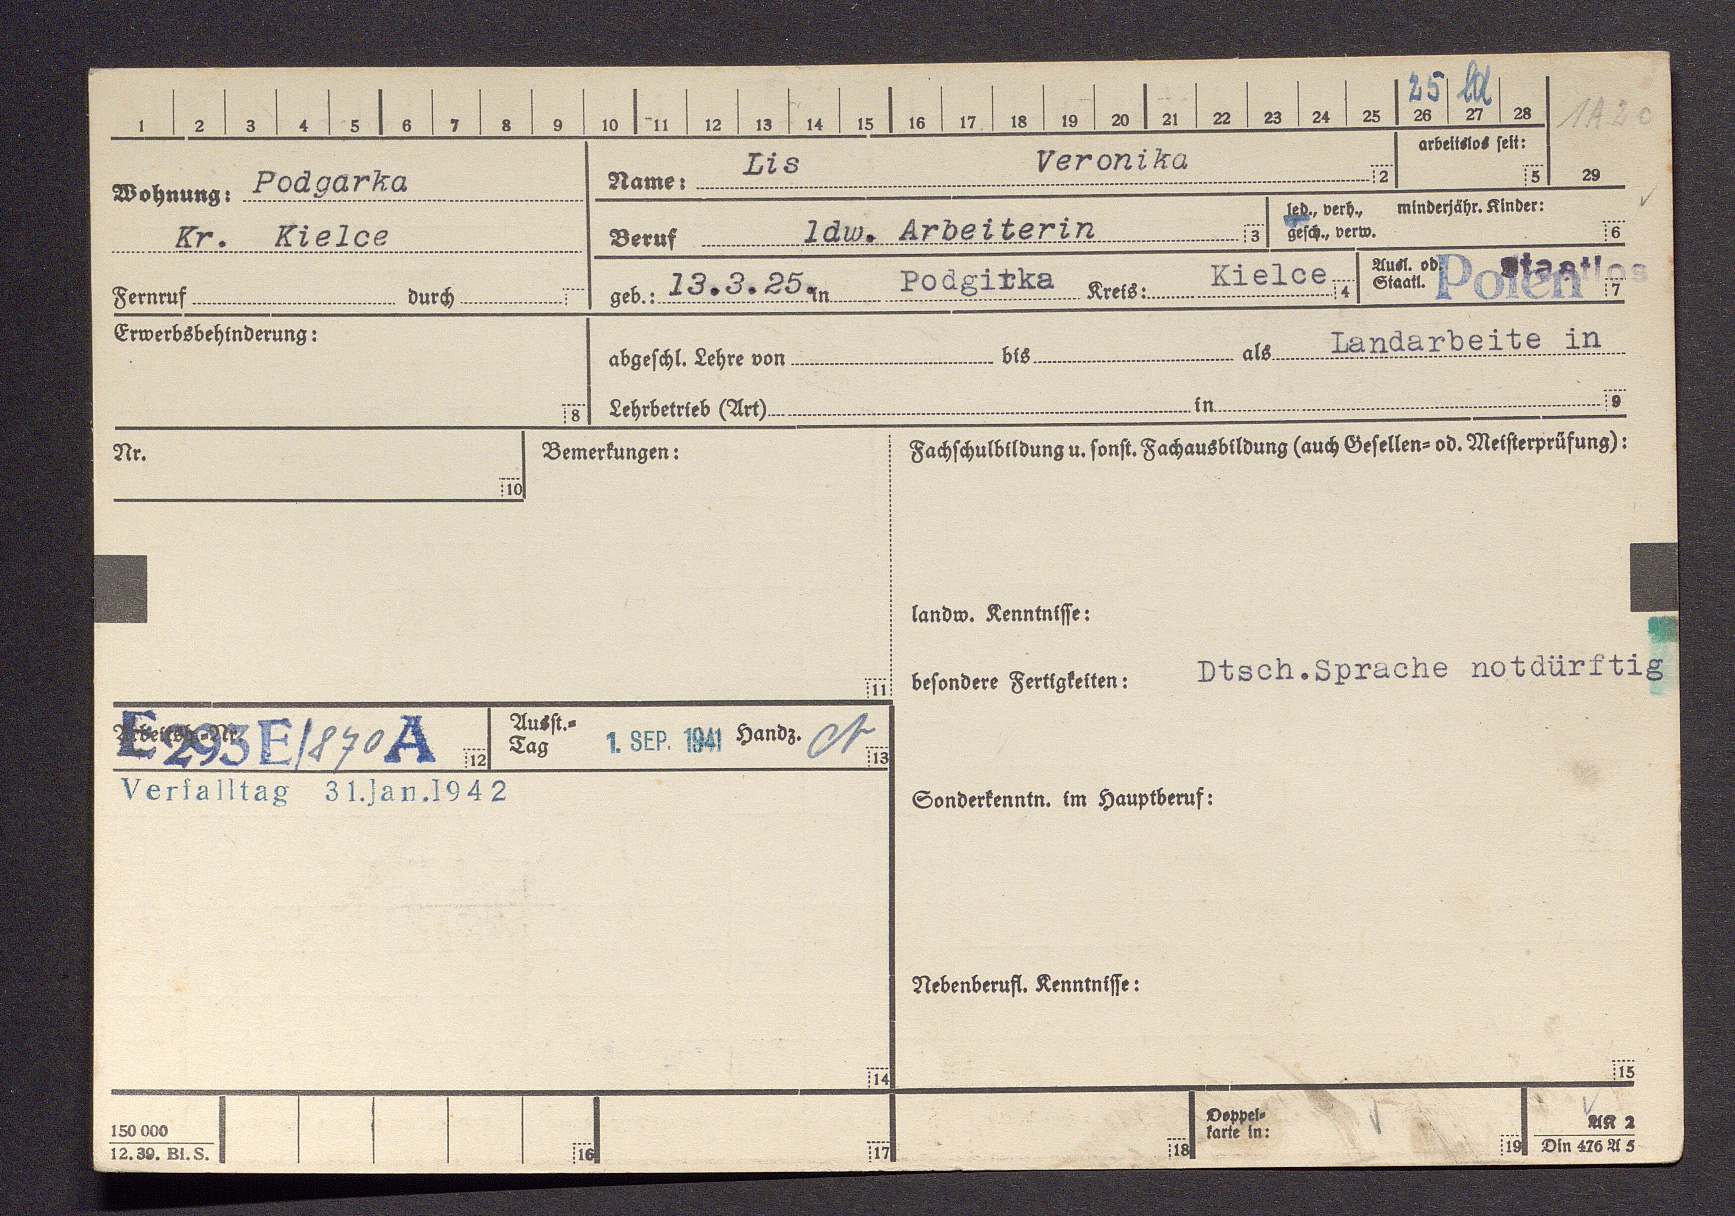 25 ld
1 2 3 4 5 6 7 8 9 10 11 12 13 14 15 16 17 18 19 20 21 22 23 24 25 26 27 28 1A2c
arbeitslos seit:
Wohnung: Podgarka Name: Lis Veronika 2 5 29
Kr. Kielce Beruf ldw. Arbeiterin 3 led., verh., minderjähr. Kinder:
gesch., verw. 6
Fernruf durch geb.: 13.3.25. in Podgirka Kreis: Kielce 4 Ausl. od. Staatl. Polen Staatlos 7
Erwerbsbehinderung: 8
abgeschl. Lehre von bis als Landarbeite in
Lehrbetrieb (Art) in 9
Nr. 10 Bemerkungen: 11
Fachschulbildung u. sonst. Fachausbildung (auch Gesellen- od. Meisterprüfung):
landw. Kenntnisse:
besondere Fertigkeiten: Dtsch.Sprache notdürftig
Arbeitsb.-Nr. E293E/870 A 12 Ausst.-
Tag 1. SEP. 1941 Handz. 13
Verfalltag 31.Jan.1942
14
Sonderkenntn. im Hauptberuf:
Nebenberufl. Kenntnisse:
15
150 000
12. 39. Bl. S. 16 17 18 Doppel-
karte in: 19 AK 2
Din 476 A 5